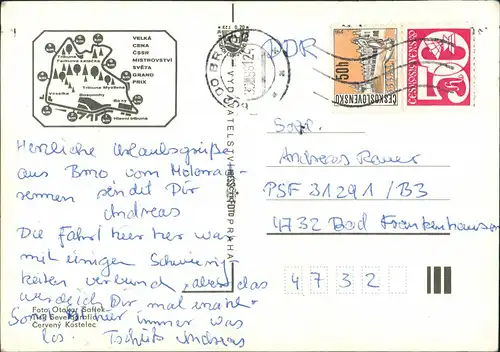 VELKÁ
CENA
ČSSR
MISTROVSTVÍ
SVĚTA
GRAND
PRIX
Tribuna
Farinova zatáčka
Tribuna Myslivna
Veselka
Bosonohy
Hlavní tribuna
VYDAVATELSTVÍ
PRAHA
DDR
50h
ČESKOSLOVENSKO
ČESKOSLOVENSKO
50h
Herzliche Urlaubsgrüße
aus Brno vom Motorrad-
rennen sendet Dir
Andreas
Die Fahrt hier her war
mit einigen Schwierig-
keiten verbund., aber das
werd ich Dir mal erzähl.
Sonst ist hier immer was
los. Tschüß Andreas
Andreas Rauer
PSF 31291/B3
4732 Bad Frankenhausen
4 7 3 2
Foto Otakar
Tisk Severografie
Červený Kostelec